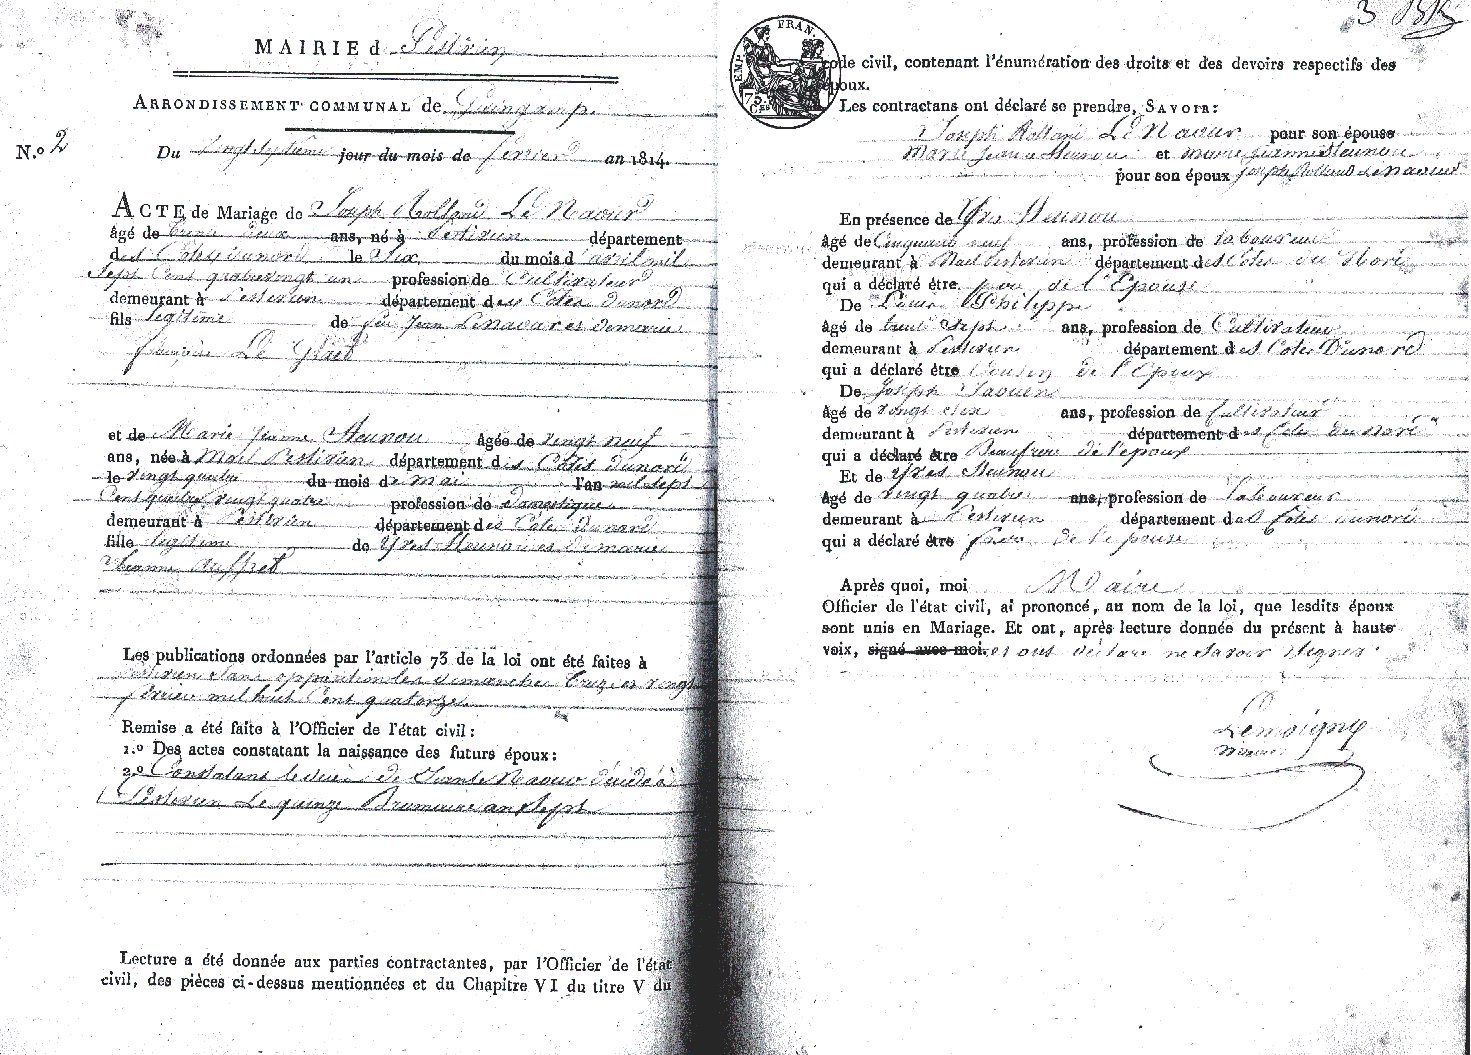 MAIRIE d Pestivien
ARRONDISSEMENT COMMUNAL de Guingamp.
N.º 2
Du vingt septième jour du mois de février an 1814.
ACTE de Mariage de Joseph Rolland Le Naour
âgé de trente deux ans, né à Pestivien département
des Cotes du nord le Six du mois d'avril mil
Sept Cent quatre vingt un profession de Cultivateur
demeurant à Pestivien département des Cotes du nord
fils legitime de feu Jean Le naour et de marie
françoise Le
et de Marie Jeanne Steunou âgée de vingt neuf
ans, née à Mael Pestivien département des Cotes du nord
le vingt quatre du mois de mai l'an mil sept
Cent quatre vingt quatre profession de domestique
demeurant à Pestivien département des Cotes du nord
fille legitime de Yves Steunou et de marie
Jeanne auffret
Les publications ordonnées par l'article 73 de la loi ont été faites à
Pestivien Sans opposition les dimanches treize et vingt
février mil huit Cent quatorze
Remise a été faite à l'Officier de l'état civil :
1.º Des actes constatant la naissance des futurs époux :
2.º Constatant le décès de Jean le Naour décédé à
Pestivien Le quinze Brumaire an Sept
Lecture a été donnée aux parties contractantes, par l'Officier de l'état
civil, des pièces ci-dessus mentionnées et du Chapitre VI du titre V du
3
EMP. FRAN.
75 CES
code civil, contenant l'énumération des droits et des devoirs respectifs des
époux.
Les contractans ont déclaré se prendre, SAVOIR :
Joseph Rolland Le Naour pour son épouse
Marie Jeanne Steunou et marie jeanne Steunou
pour son époux Joseph Rolland Le naour
En présence de Yves Steunou
âgé de Cinquante neuf ans, profession de laboureur
demeurant à Mael Pestivien département des Cotes du Nord
qui a déclaré être père de l'Epouse
De Philippe
âgé de trente Sept ans, profession de Cultivateur
demeurant à Pestivien département des Cotes Du nord
qui a déclaré être Cousin de l'Epoux
De Joseph Saouen
âgé de vingt six ans, profession de Cultivateur
demeurant à Pestivien département des Cotes du nord
qui a déclaré être Beaufrere de l'epoux
Et de Yves Steunou
âgé de vingt quatre ans, profession de Laboureur
demeurant à Pestivien département des Cotes du nord
qui a déclaré être frere de l'epouse
Après quoi, moi Maire
Officier de l'état civil, ai prononcé, au nom de la loi, que lesdits époux
sont unis en Mariage. Et ont, après lecture donnée du présent à haute
voix, signé avec moi. et ont déclaré ne Savoir Signer
Lemoigne
maire